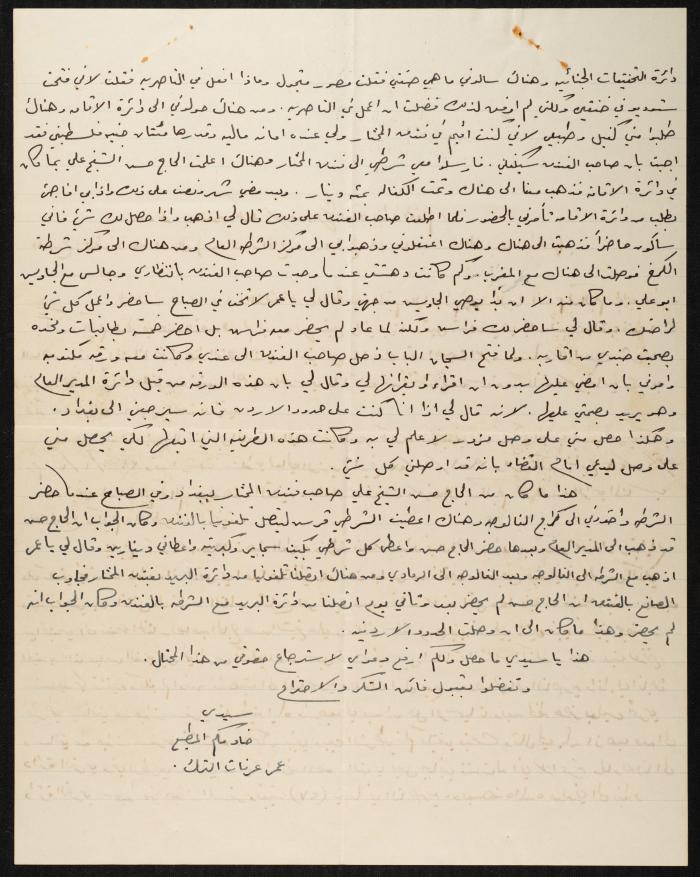 دائرة التحقيقات الجنائيه وهناك سالوني ما هي صنعتي فقلت مصور متجول وماذا افعل في الناصريه فقلت لاني فتحت
ستوديو في ولكني لم اوفق لذلك فضلت ان اعمل في الناصريه . ومن هناك حولوني الى دائرة الاقامه وهناك
طلبوا مني كفيل وطبعاً لاني كنت اقيم في فندق المختار ولي عنده امانه ماليه وقدرها مئتان جنيه فلسطيني فقد
اجبت بان صاحب الفندق سيكفلني . فارسلوا معي شرطي الى فندق المختار وهناك اعلمت الحاج حسن الشيخ علي بما كان
في دائرة الاقامة فذهب معنا الى هناك وتمت الكفاله بمئة دينار . وبعد مضي شهر ونصف على ذلك واذا بي افاجئ
بطلب من دائرة الاقامه تأمرني بالحضور فلما اطلعت صاحب الفندق على ذلك قال لي اذهب واذا حصل لك شيئ فاني
ساكون حاضراً فذهبت الى هناك وهناك اعتقلوني وذهبوا بي الى مركز الشرطه العام ومن هناك الى مركز شرطة
الكرخ فوصلت الى هناك مع المغرب . وكم كانت دهشتي عندما وجدت صاحب الفندق بانتظاري وجالس مع الجاويش
ابو علي . وما كان منه الا ان بدأ يوصي الجاويش من جهتي وقال لي يا عمر لا تخف في الصباح ساحضر واعمل كل شيئ
لراحتك . وقال لي ساحضر لك فراش ولكنه لما عاد لم يحضر معه فراش بل احضر خمسة بطانيات ومخده
بصحبت جندي من اقاربه . ولما فتح السجان الباب دخل صاحب الفندق الى عندي وكانت معه ورقه مكتوبه
وامرني بان امضي عليها بدون ان اقراءها او يقرأها لي وقال لي بان هذه الورقه من قبل دائرة المدير العام
وهو يريد بصمتي عليها . لانه قال لي اذا انا كنت على حدود الاردن فانه سيرجعني الى بغداد .
وهكذا حصل مني على وصل مزور لا علم لي به وكانت هذه الطريقه التي اتبعها لكي يحصل مني
على وصل ليدعي امام القضاء بانه قد اوصلني كل شيئ .
هذا ما كان من الحاج حسن الشيخ علي صاحب فندق المختار ببغداد وفي الصباح عندما حضر
الشرطه واخذوني الى كراج الفالوجه وهناك اعطيت الشرطي قرش ليتصل تلفونيا بالفندق وكان الجواب ان الحاج حسن
قد ذهب الى المدير العام وبعدها حضر الحاج حسن واعطى كل شرطي بكيت سجاير وكبريته واعطاني دينارين وقال لي يا عمر
اذهب مع الشرطه الى الفالوجه وبعد الفالوجه الى الرمادي ومن هناك اتصلنا تلفونيا من دائرة البريد بفندق المختار فجاوب
الصانع بالفندق ان الحاج حسن لم يحضر بعد وثاني يوم اتصلنا من دائرة البريد مع الشرطه بالفندق وكان الجواب انه
لم يحضر وهذا ما كان الى ان وصلت الحدود الاردنيه .
هذا يا سيدي ما حصل ولكم ارفع دعواي لاسترجاع حقوقي من هذا المحتال .
وتفضلوا بقبول فائق الشكر والاحترام
سيدي
خادمكم المطيع
عمر عرفات الترك .